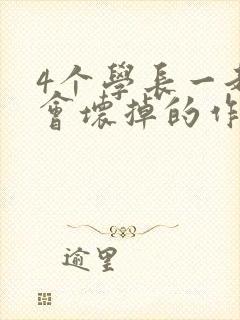 4个學長一
會壞掉的作
逾里